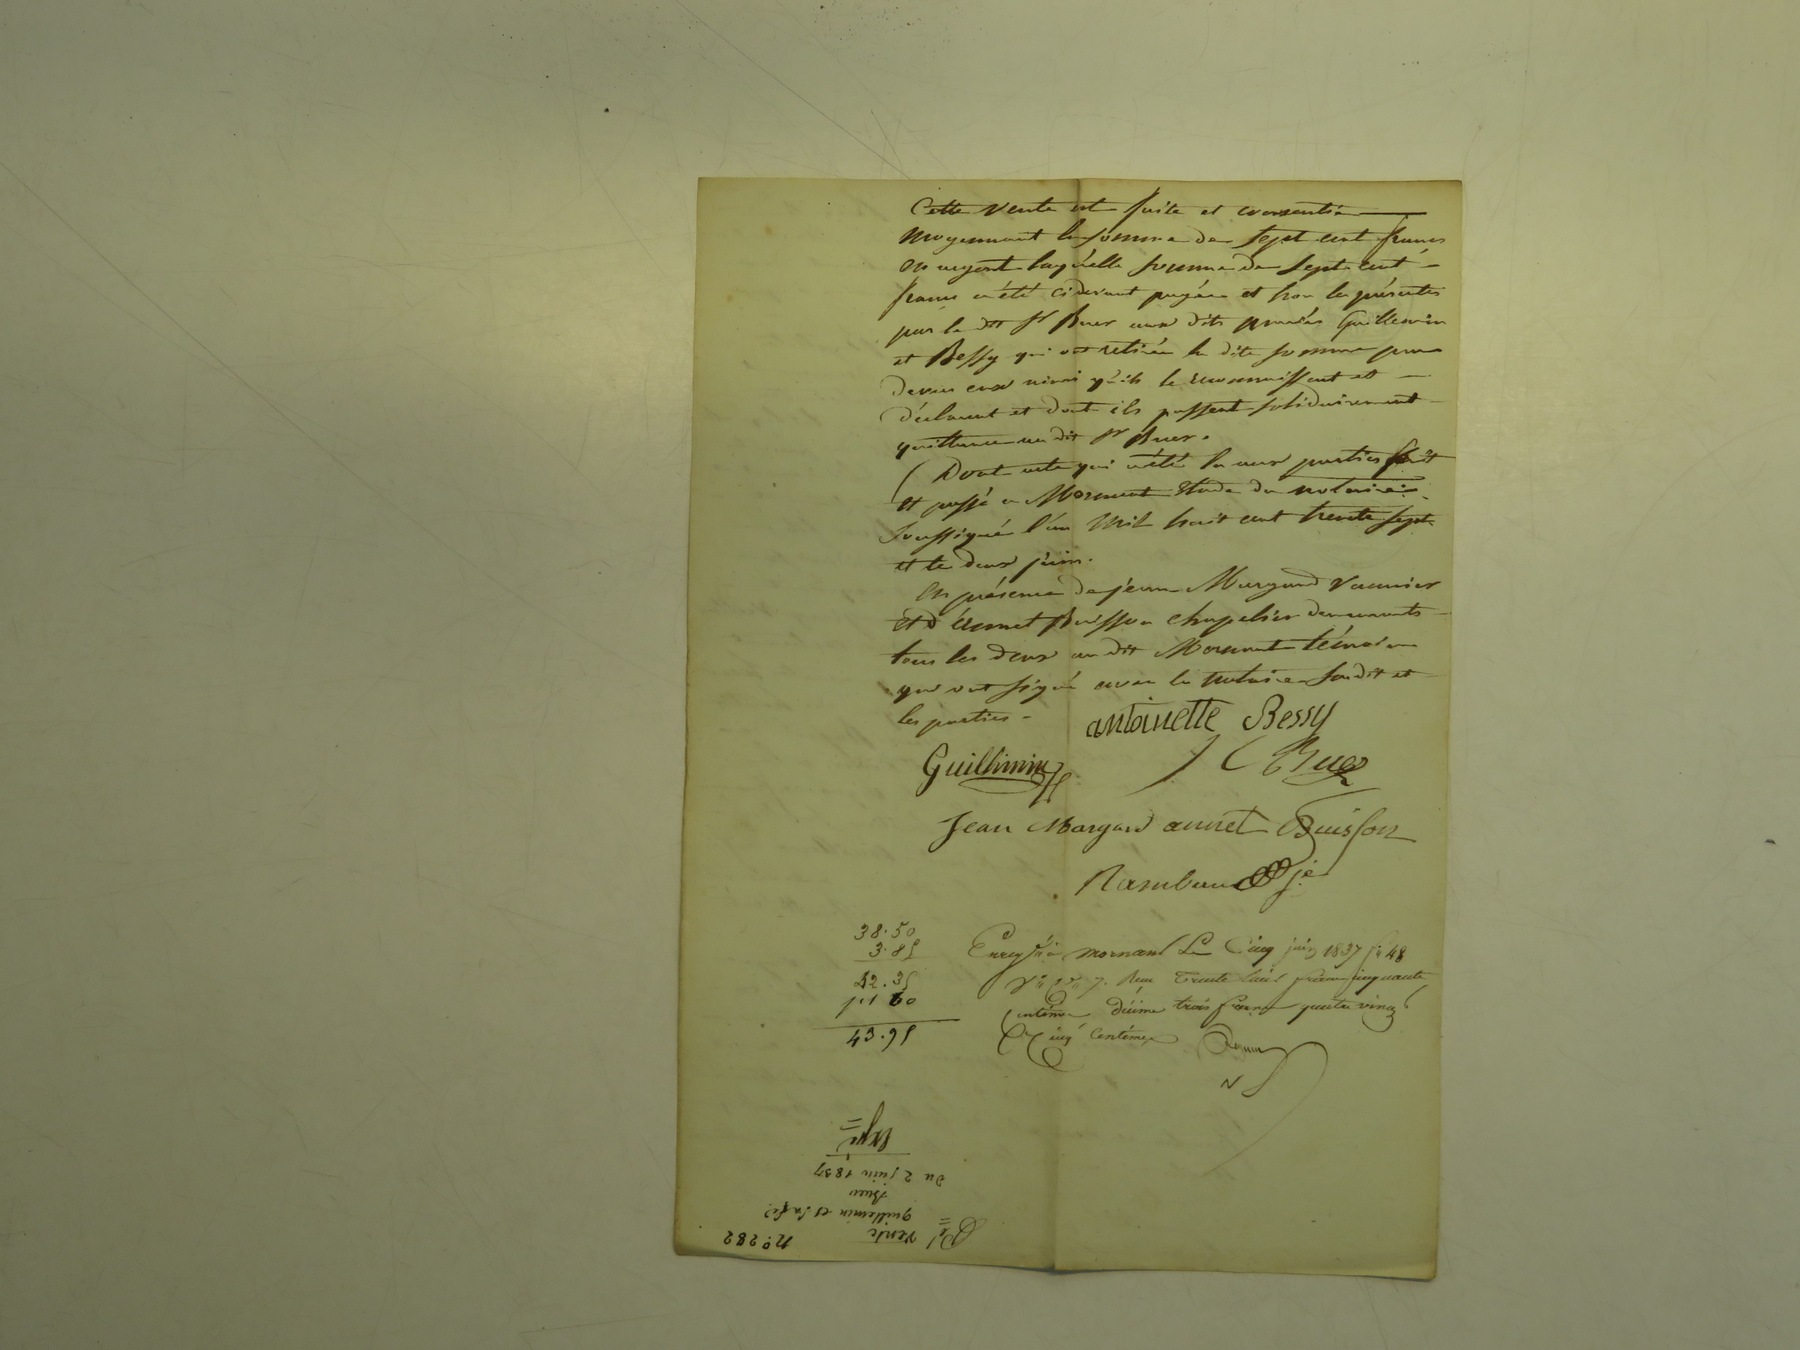 Cette vente est faite et consentie
moyennant la somme de sept cent francs
en argent laquelle somme de sept cent
francs a été cidevant payée et hors les présentes
par le dit Sr Buer aux dits mariés Guillemin
et Bessy qui ont retirée la dite somme pour
devers eux ainsi qu'ils le reconnaissent et
déclarent et dont ils passent solidairement
quittance au dit Sr Buer.
Dont acte qui a été lu aux parties fait
et passé a Mornant Etude du notaire
soussigné l'an mil huit cent trente sept
et le deux juin.
En présence de jean Margand vannier
et d'Annet Buisson chapelier demeurants
tous les deux au dit Mornant témoins
qui ont signé avec le notaire susdit et
les parties -
antoinette Bessy
Guillimin Buer
Jean Margand annet Buisson
Rambaud je
38.50
3.85
42.35
1 60
43.95
Enregtré à mornant Le Cinq juin 1837 fo 48
Vo Reçu Trente huit francs cinquante
centimes décime trois francs quatre vingt
Cinq Centimes
N
n° 282
Vente
guillemin et sa fe
Buer
du 2 juin 1837
Expé